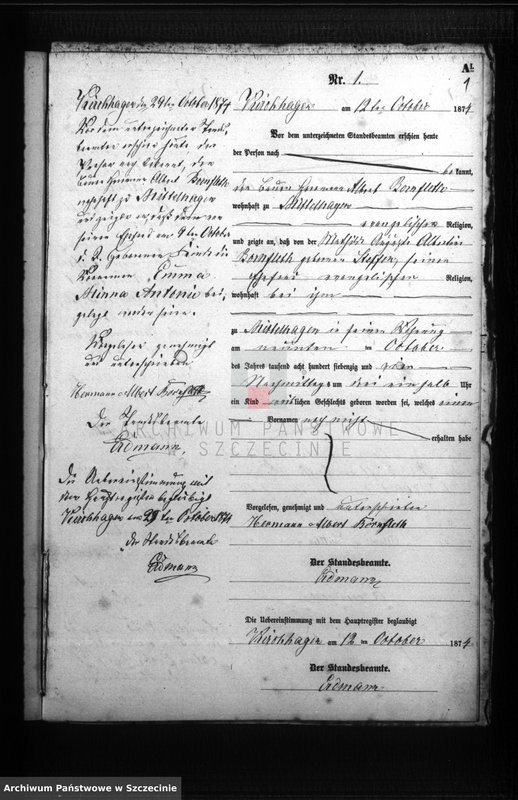 A1.
1
Nr. 1.
Kirchhagen am 12ten October 1874
Vor dem unterzeichneten Standesbeamten erschien heute
der Person nach
be kannt,
der Bauer Hermann Albert Bornfleth
wohnhaft zu Mittelhagen
evangelischer Religion,
und zeigte an, daß von der Mathilde Auguste Albertine
Bornfleth geborenen Steffen, seiner
Ehefrau evangelischer Religion,
wohnhaft bei ihm
zu Mittelhagen in seiner Wohnung
am neunten ten October
des Jahres tausend acht hundert siebenzig und vier
Nachmittags um drei einhalb Uhr
ein Kind weiblichen Geschlechts geboren worden sei, welches einen
Vornamen noch nicht
erhalten habe
Vorgelesen, genehmigt und unterschrieben
Hermann Albert Bornfleth
Der Standesbeamte.
Erdmann
Die Uebereinstimmung mit dem Hauptregister beglaubigt
Kirchhagen am 12 ten October 1874
Der Standesbeamte.
Erdmann
Kirchhagen den 29ten October 1874
Vor dem unterzeichneten Standesbeamten
erschien heute der
Person nach bekannt, der
Bauer Hermann Albert Bornfleth
wohnhaft zu Mittelhagen
und zeigte an, daß dem von
seiner Ehefrau am 9ten October
d. J. geborenen Kinde die
Vornamen Emma
Minna Antonie beigelegt
worden seien.
Vorgelesen genehmigt
und unterschrieben
Hermann Albert Bornfleth
Der Standesbeamte
Erdmann
Die Uebereinstimmung mit
dem Hauptregister beglaubigt
Kirchhagen am 29ten October 1874
Der Standesbeamte
Erdmann
ARCHIWUM PAŃSTWOWE
W SZCZECINIE
Archiwum Państwowe w Szczecinie